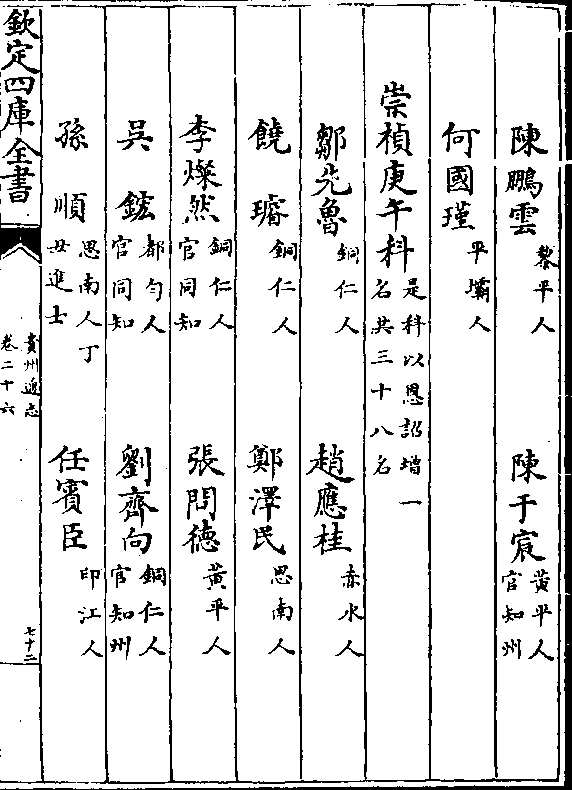 陳鵬雲黎平人 陳于宸黃平人官知州
何國瑾平壩人
崇禎庚午科是科以恩詔增一名共三十八名
鄒先魯銅仁人 趙應桂赤水人
饒璿銅仁人 鄭澤民思南人
李燦然銅仁人官同知 張問德黃平人
吳鋐都勻人官同知 劉齊向銅仁人官知州
孫順思南人丁丑進士 任賓臣印江人
欽定四庫全書 貴州通志卷二十六 七十二